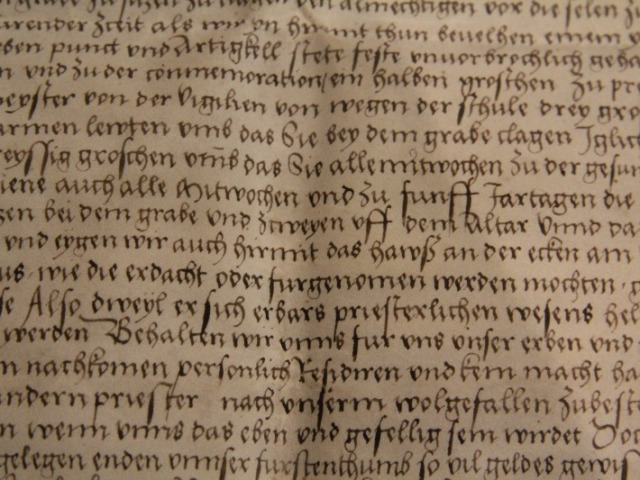 zu bitten den almechtigen vor die selen
turender Zceit als wir yn hirmit thun bevelhen einem
eben punct und Artigkell stete feste unvorbrochlich geha
n und zu der commemoration ein halben groschen zu pre
eyster von der vigilien von wegen der schule drey gro
armen lewten umb das Sie bey dem grabe clagen Iglich
reyssig groschen umb das Sie alle mitwochen zu der gesun
iene auch alle Mitwochen und zu funff Jartagen die
zen bei dem grabe und zcweyen uff dem Altar Unnd da
und eygen wir auch hirmit das hawß an der ecken am
us wie die erdacht oder furgenomen werden mochten
se Also dweyl er sich erbars priesterlichen wesens hel
werden Behalten wir unns fur uns unser erben und
n nachkomen personlich Residiren und kein macht ha
andern priester nach unserm wolgefallen zubeste
n wenn unns das eben und gefellig sein wirdet Doc
gelegen enden unnser furstenthumb so vil geldes gewis